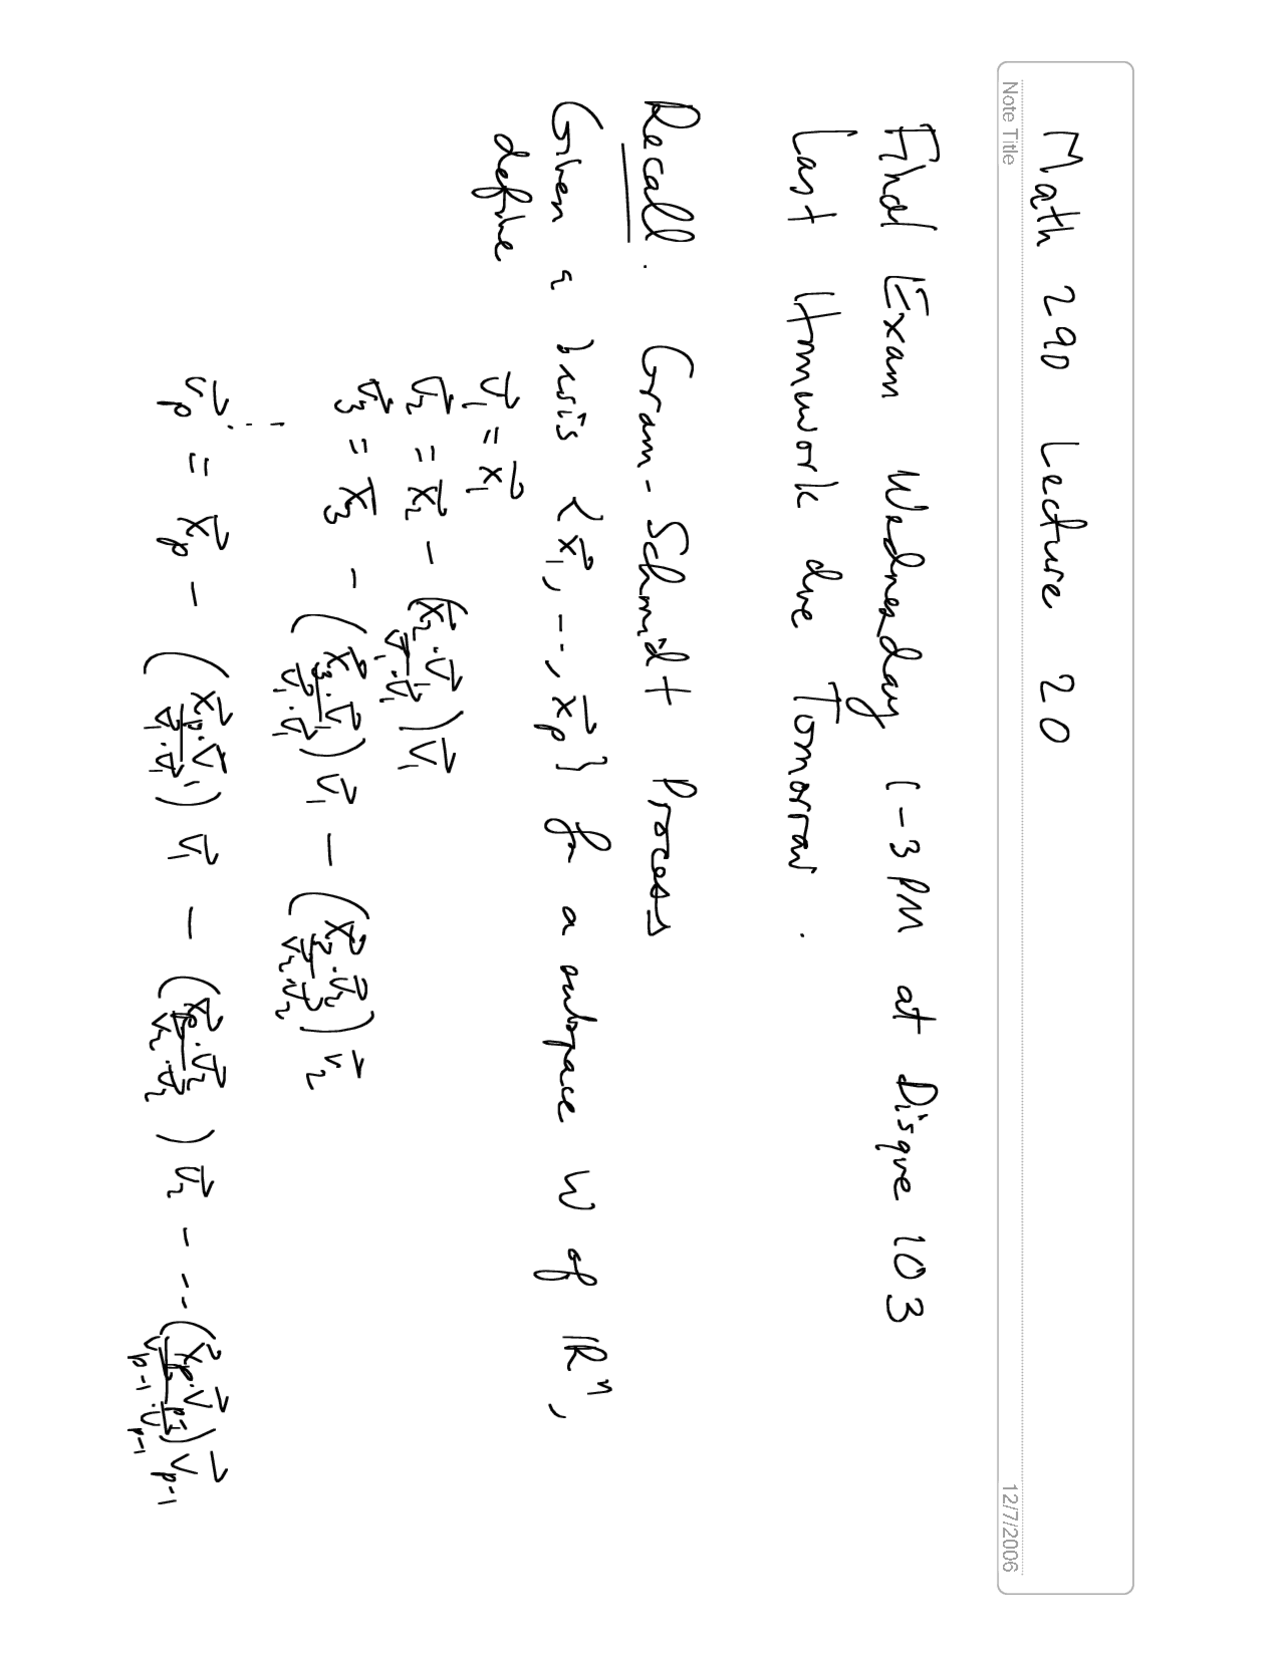 Math 290 Lecture 20
Note Title
12/7/2006
Final Exam Wednesday 1-3 PM at Disque 103
Last Homework due Tomorrow.
Recall. Gram-Schmidt Process
Given a basis {x⃗₁, ..., x⃗ₚ} for a subspace W of ℝⁿ,
define
v⃗₁ = x⃗₁
v⃗₂ = x⃗₂ - (x⃗₂·v⃗₁ / v⃗₁·v⃗₁) v⃗₁
v⃗₃ = x⃗₃ - (x⃗₃·v⃗₁ / v⃗₁·v⃗₁) v⃗₁ - (x⃗₃·v⃗₂ / v⃗₂·v⃗₂) v⃗₂
⋮
v⃗ₚ = x⃗ₚ - (x⃗ₚ·v⃗₁ / v⃗₁·v⃗₁) v⃗₁ - (x⃗ₚ·v⃗₂ / v⃗₂·v⃗₂) v⃗₂ - ... (x⃗ₚ·v⃗ₚ₋₁ / v⃗ₚ₋₁·v⃗ₚ₋₁) v⃗ₚ₋₁